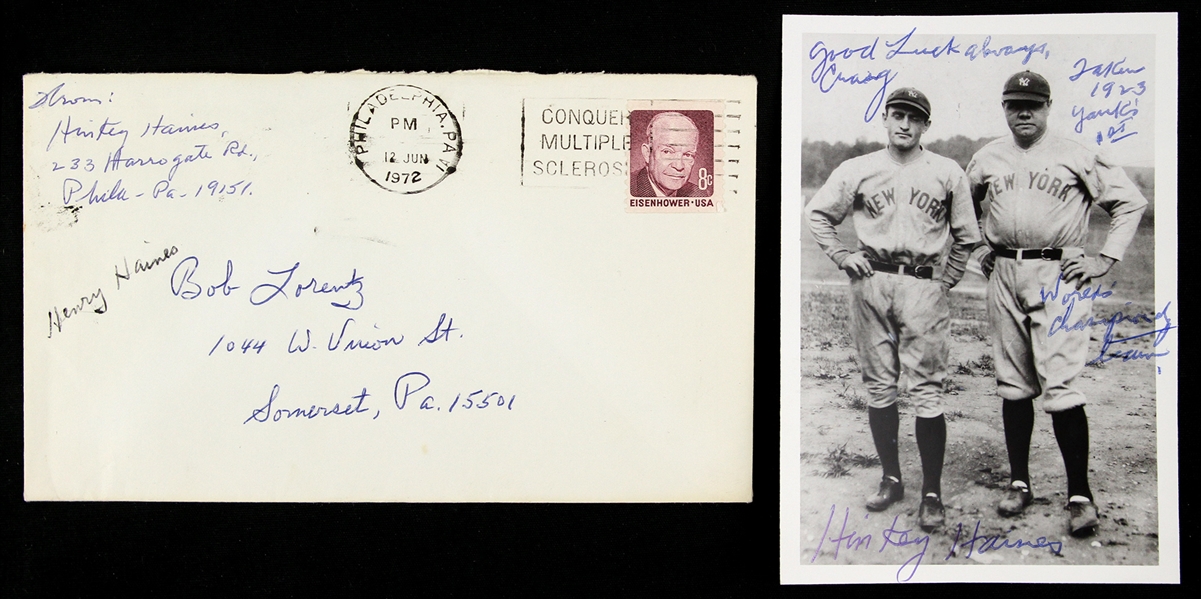 From:
Hinkey Haines,
233 Harrogate Rd.,
Phila - Pa - 19151.
PHILADELPHIA, PA
PM
12 JUN
1972
CONQUER
MULTIPLE
SCLEROS
8c
EISENHOWER·USA
Henry Haines
Bob Lorentz
1044 W. Union St.
Somerset, Pa. 15501
Good Luck always,
Craig
Taken
1923
Yank's
1st
NY
NY
NEW YORK
NEW YORK
World's
Championship
team
Hinkey Haines